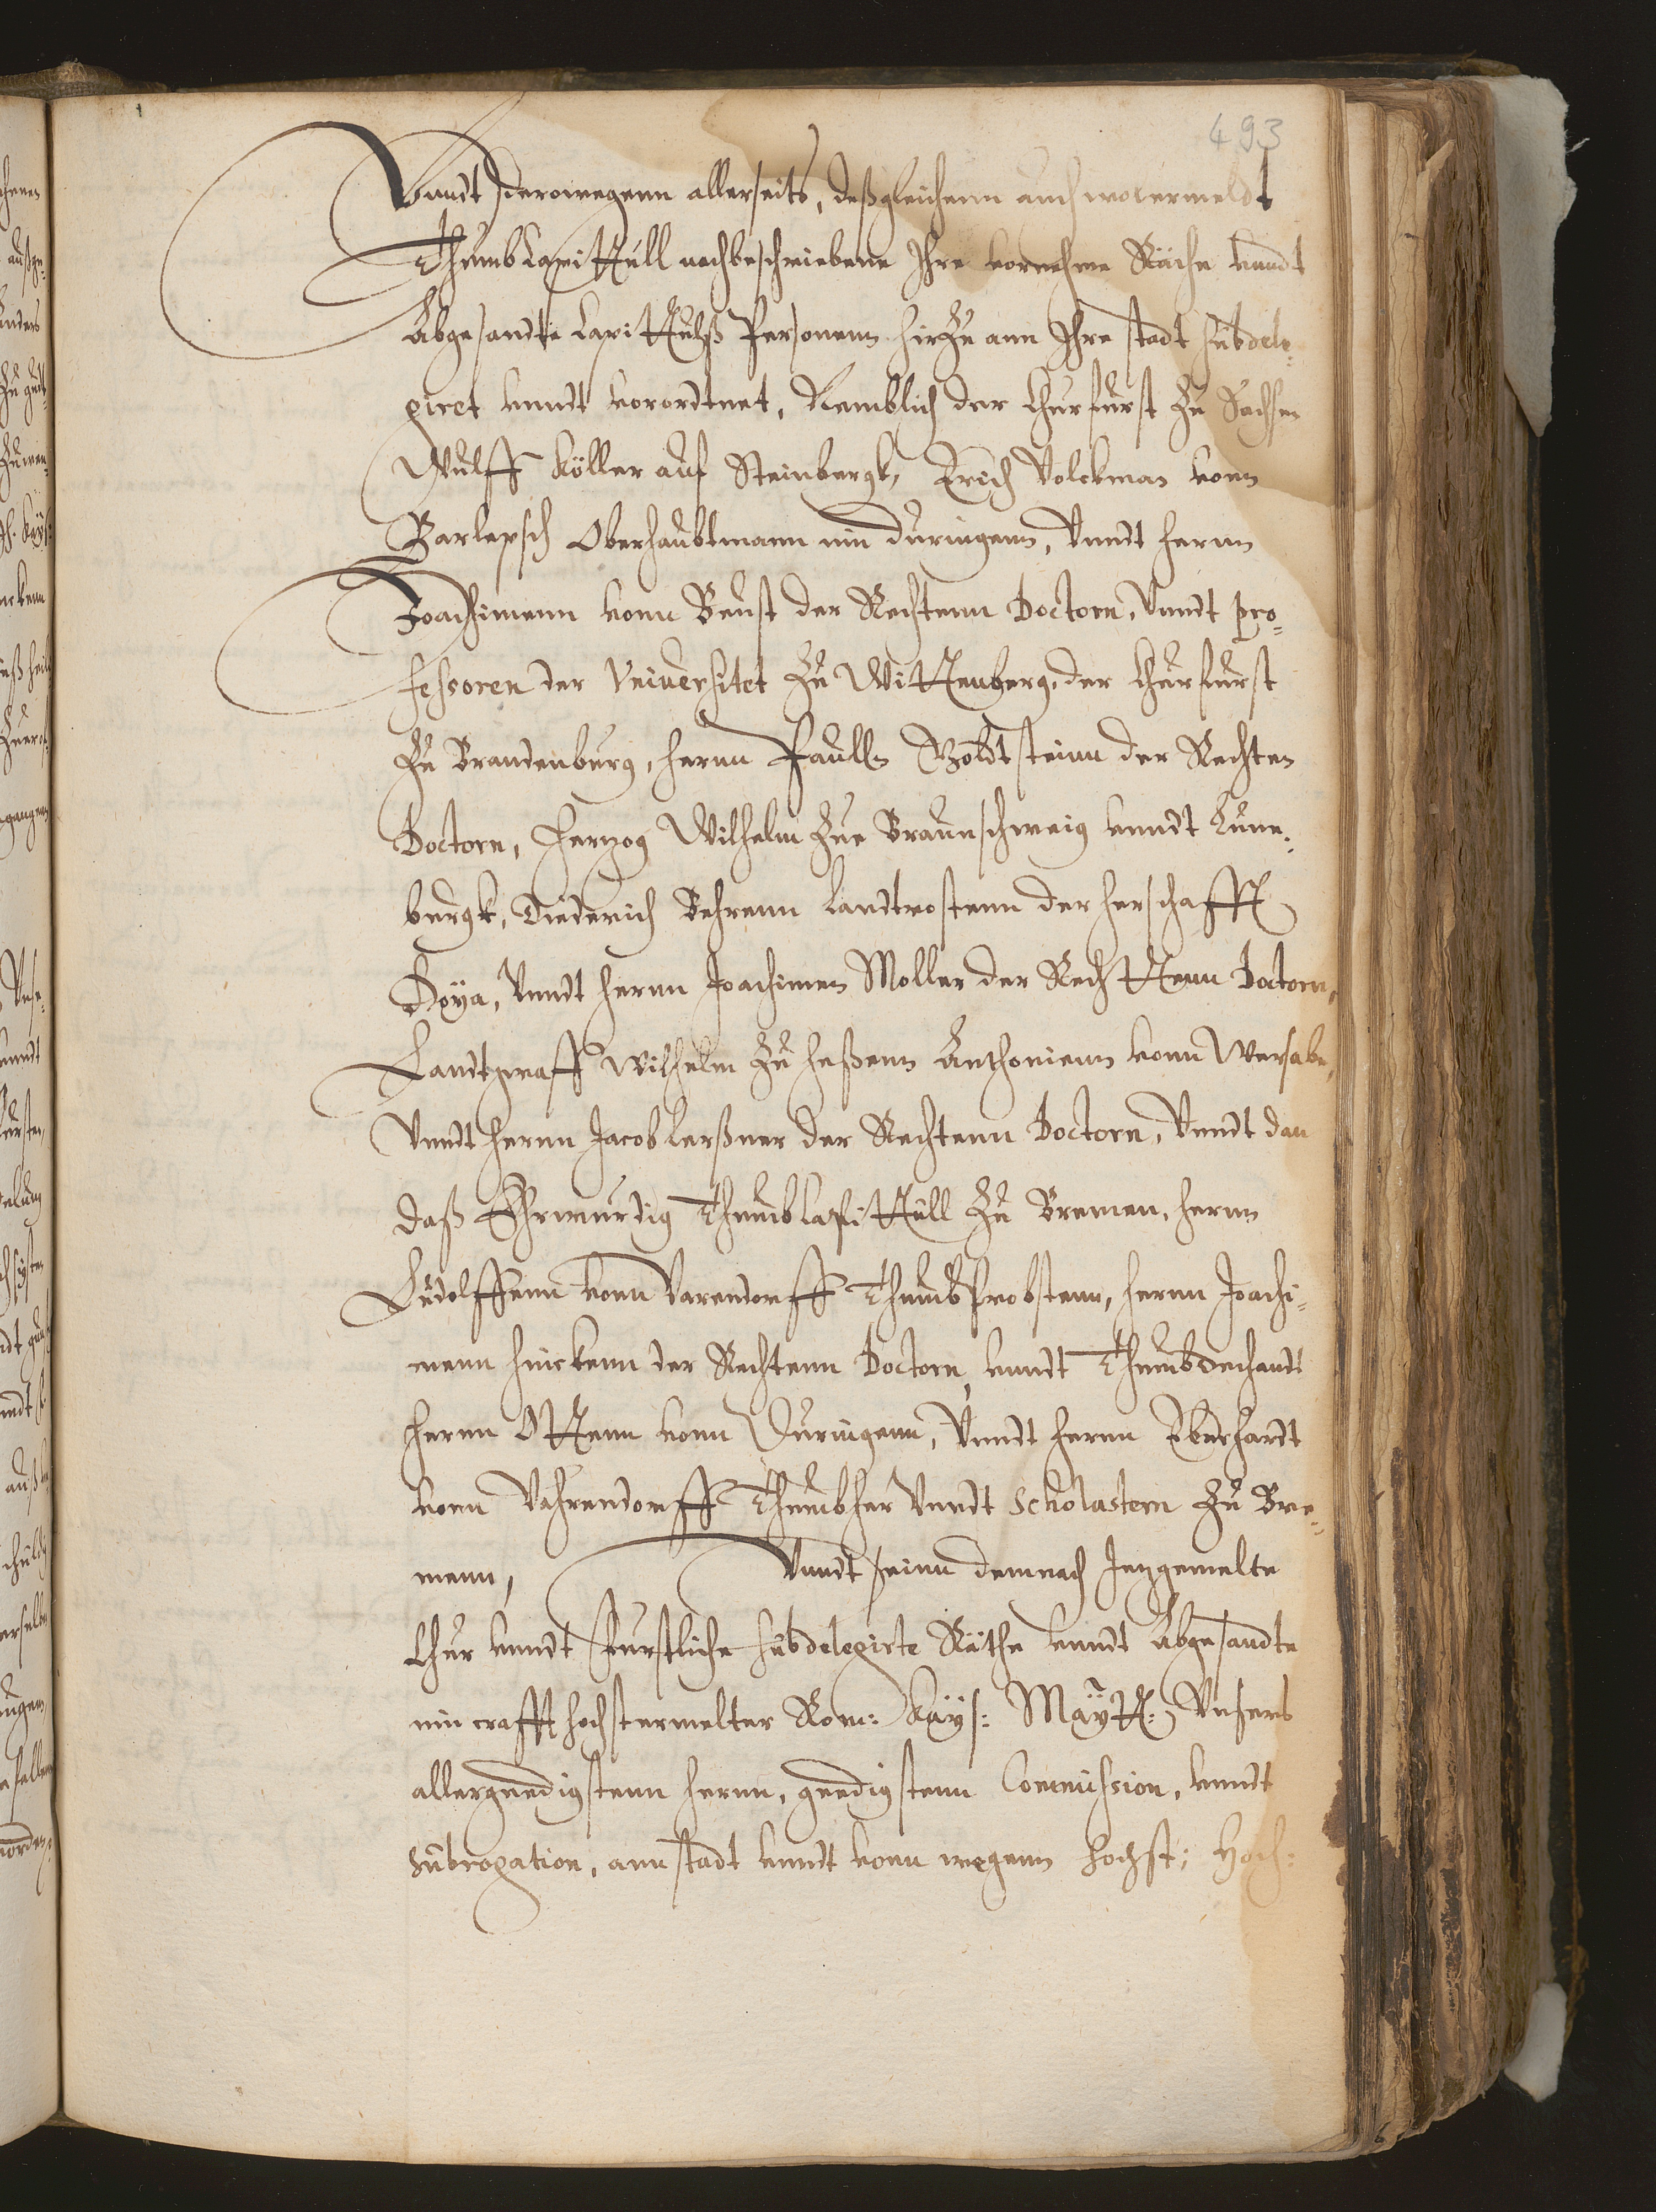 493
Vnndt derowegenn allerseits, deßgleichenn auch wolermeldt
Thumb Capittull nachbeschriebene Ihre vornehme Räthe vnndt
Abgesandte Capittulß Personenn hirzu ann Ihre stadt subdele¬
giret vnndt verordtnet, Nemblich der Churfurst zu Sachsen
Wulff Köller auf Steinbergk, Erich Volckmar vonn
Barlepsch Oberhaubtmann inn Duringenn, Vnndt herrnn
Joachimenn vonn Beust der Rechtenn Doctorn, Vnndt pro¬
fessoren der Vniuersitet zu Wittenberg, der Churfurst
zu Brandenburg, herrnn Paulln Goldtsteinn der Rechten
Doctorn, Hertzog Wilhelm zue Braunschweig vnndt Lune¬
burgk, Diederich Behrenn Landtrostenn der herschafft
Hoya, Vnndt herrnn Joachimen Moller der Rechttenn Doctorn,
Landtgraff Wilhelm zu heßenn Anthonienn vonn Wersabe,
Vnndt herrnn Jacob Lerßner der Rechtenn Doctorn, Vnndt dan
daß Ehrwurdig Thumbcapittull zu Bremen, herrnn
Ludolffenn vonn Varendorff Thumb Probstenn, herrnn Joachi¬
menn hinckenn der Rechtenn Doctorn, vnndt Thumbdechandt
herrnn Ottenn vonn Duringenn, Vnndt herrnn Eberhardt
vonn Vahrendorff Thumbher Vnndt Scholastern zu Bre¬
menn, Vnndt seinn demnach Jetzgemelte
Chur vnndt furstliche subdelegirte Räthe vnndt Abgesandte
inn crafft hochstermelter Rom: Kays: Maytt: Vnsers
allergnedigstenn herrnn, gnedigstenn Commission, vnndt
subrogation, ann stadt vnndt vonn wegenn hochst: Hoch: